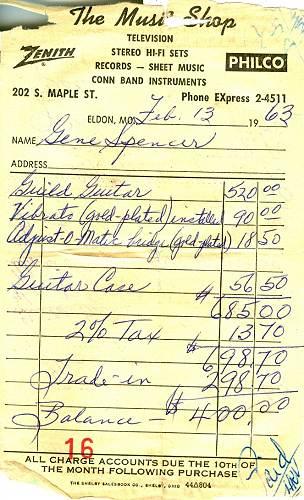 The Music Shop
TELEVISION
ZENITH STEREO HI-FI SETS PHILCO
RECORDS — SHEET MUSIC
CONN BAND INSTRUMENTS
202 S. MAPLE ST. Phone EXpress 2-4511
ELDON, MO. Feb. 13 1963
NAME Gene Spencer
ADDRESS
Guild Guitar 520 00
Vibrato (gold-plated) installed 90 00
Adjust-O-Matic bridge (gold-plated) 18 50
Guitar Case 56 50
$ 685.00
2% Tax 13 70
$ 698.70
Trade-in 298.70
Balance — $ 400.00
16
ALL CHARGE ACCOUNTS DUE THE 10TH OF
THE MONTH FOLLOWING PURCHASE
THE SHELBY SALESBOOK CO., SHELBY, OHIO 44D804